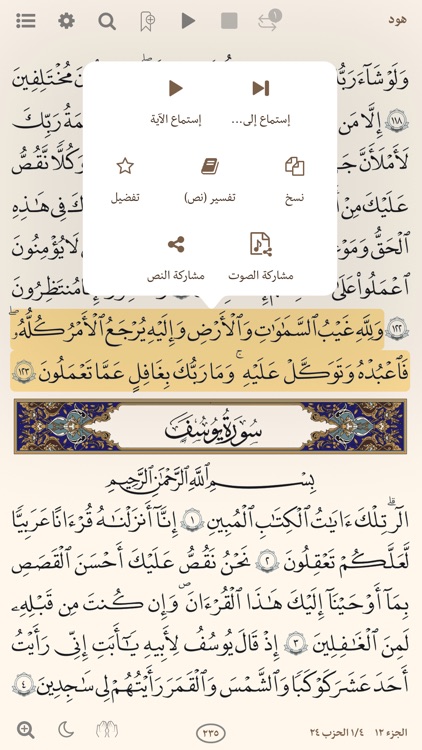 هود
١
وَلَوْ شَآءَ رَبُّ مُخْتَلِفِينَ
١١٨ إِلَّا مَن مَةُ رَبِّكَ
لَأَمْلَأَنَّ جَ وَكُلًّا نَّقُصُّ
عَلَيْكَ مِنْ كَ فِى هَـٰذِهِ
ٱلْحَقُّ وَمَوْعِ لَا يُؤْمِنُونَ
ٱعْمَلُوا۟ عَلَىٰ مُنتَظِرُونَ
إستماع إلى...
إستماع الآية
نسخ
تفسير (نص)
تفضيل
مشاركة الصوت
مشاركة النص
١٢٢ وَلِلَّهِ غَيْبُ ٱلسَّمَـٰوَٰتِ وَٱلْأَرْضِ وَإِلَيْهِ يُرْجَعُ ٱلْأَمْرُ كُلُّهُۥ
فَٱعْبُدْهُ وَتَوَكَّلْ عَلَيْهِ ۚ وَمَا رَبُّكَ بِغَـٰفِلٍ عَمَّا تَعْمَلُونَ ١٢٣
سُورَةُ يُوسُفَ
بِسْمِ ٱللَّهِ ٱلرَّحْمَـٰنِ ٱلرَّحِيمِ
الٓر ۚ تِلْكَ ءَايَـٰتُ ٱلْكِتَـٰبِ ٱلْمُبِينِ ١ إِنَّآ أَنزَلْنَـٰهُ قُرْءَٰنًا عَرَبِيًّا
لَّعَلَّكُمْ تَعْقِلُونَ ٢ نَحْنُ نَقُصُّ عَلَيْكَ أَحْسَنَ ٱلْقَصَصِ
بِمَآ أَوْحَيْنَآ إِلَيْكَ هَـٰذَا ٱلْقُرْءَانَ وَإِن كُنتَ مِن قَبْلِهِۦ
لَمِنَ ٱلْغَـٰفِلِينَ ٣ إِذْ قَالَ يُوسُفُ لِأَبِيهِ يَـٰٓأَبَتِ إِنِّى رَأَيْتُ
أَحَدَ عَشَرَ كَوْكَبًا وَٱلشَّمْسَ وَٱلْقَمَرَ رَأَيْتُهُمْ لِى سَـٰجِدِينَ ٤
الجزء ١٢ ١/٤ الحزب ٢٤
٢٣٥